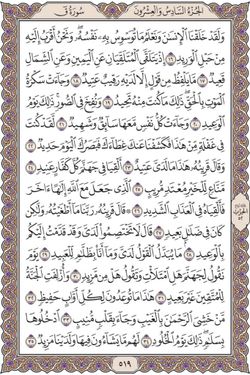 الجزء السادس والعشرون سورة ق
ولقد خلقنا الإنسن ونعلم ما توسوس به نفسه ونحن أقرب إليه
من حبل الوريد ١٦ إذ يتلقى المتلقيان عن اليمين وعن الشمال
قعيد ١٧ ما يلفظ من قول إلا لديه رقيب عتيد ١٨ وجاءت سكرة
الموت بالحق ذلك ما كنت منه تحيد ١٩ ونفخ في الصور ذلك يوم
الوعيد ٢٠ وجاءت كل نفس معها سائق وشهيد ٢١ لقد كنت
في غفلة من هذا فكشفنا عنك غطاءك فبصرك اليوم حديد ٢٢
وقال قرينه هذا ما لدي عتيد ٢٣ ألقيا في جهنم كل كفار عنيد ٢٤
مناع للخير معتد مريب ٢٥ الذي جعل مع الله إلها ءاخر
فألقياه في العذاب الشديد ٢٦ قال قرينه ربنا ما أطغيته ولكن
كان في ضلل بعيد ٢٧ قال لا تختصموا لدي وقد قدمت إليكم
بالوعيد ٢٨ ما يبدل القول لدي وما أنا بظلم للعبيد ٢٩ يوم
نقول لجهنم هل امتلأت وتقول هل من مزيد ٣٠ وأزلفت الجنة
للمتقين غير بعيد ٣١ هذا ما توعدون لكل أواب حفيظ ٣٢
من خشي الرحمن بالغيب وجاء بقلب منيب ٣٣ ادخلوها
بسلم ذلك يوم الخلود ٣٤ لهم ما يشاءون فيها ولدينا مزيد ٣٥
٥١٩